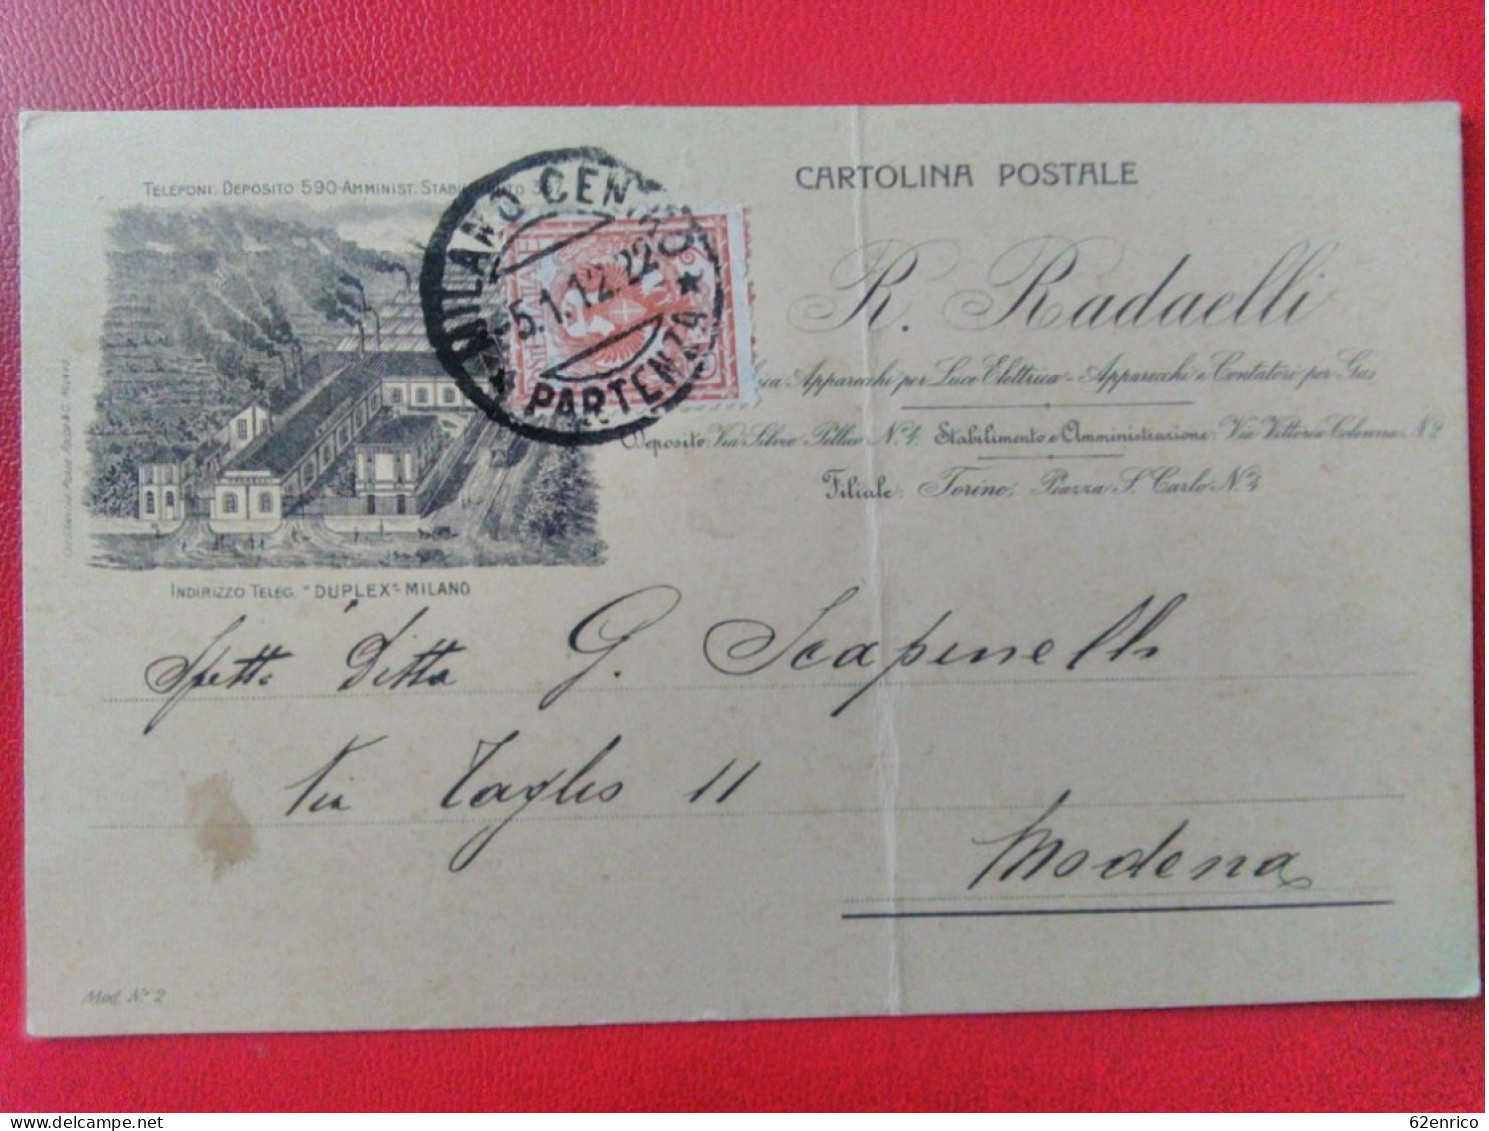 CARTOLINA POSTALE
TELEFONI: DEPOSITO 590-AMMINIST. STABILIMENTO
MILANO CENTRO
5.1.12.22
PARTENZA
R. Radaelli
Apparecchi per Luce Elettrica - Apparecchi e Contatori per Gas
Deposito: Via Silvio Pellico N. 4. Stabilimento e Amministrazione: Via Vittoria Colonna N. 2
Filiale: Torino, Piazza S. Carlo N. 3
INDIRIZZO TELEG. "DUPLEX"-MILANO
Spett. Ditta G. Scapinelli
Via Taglio 11
Modena
Mod. N° 2
62enrico